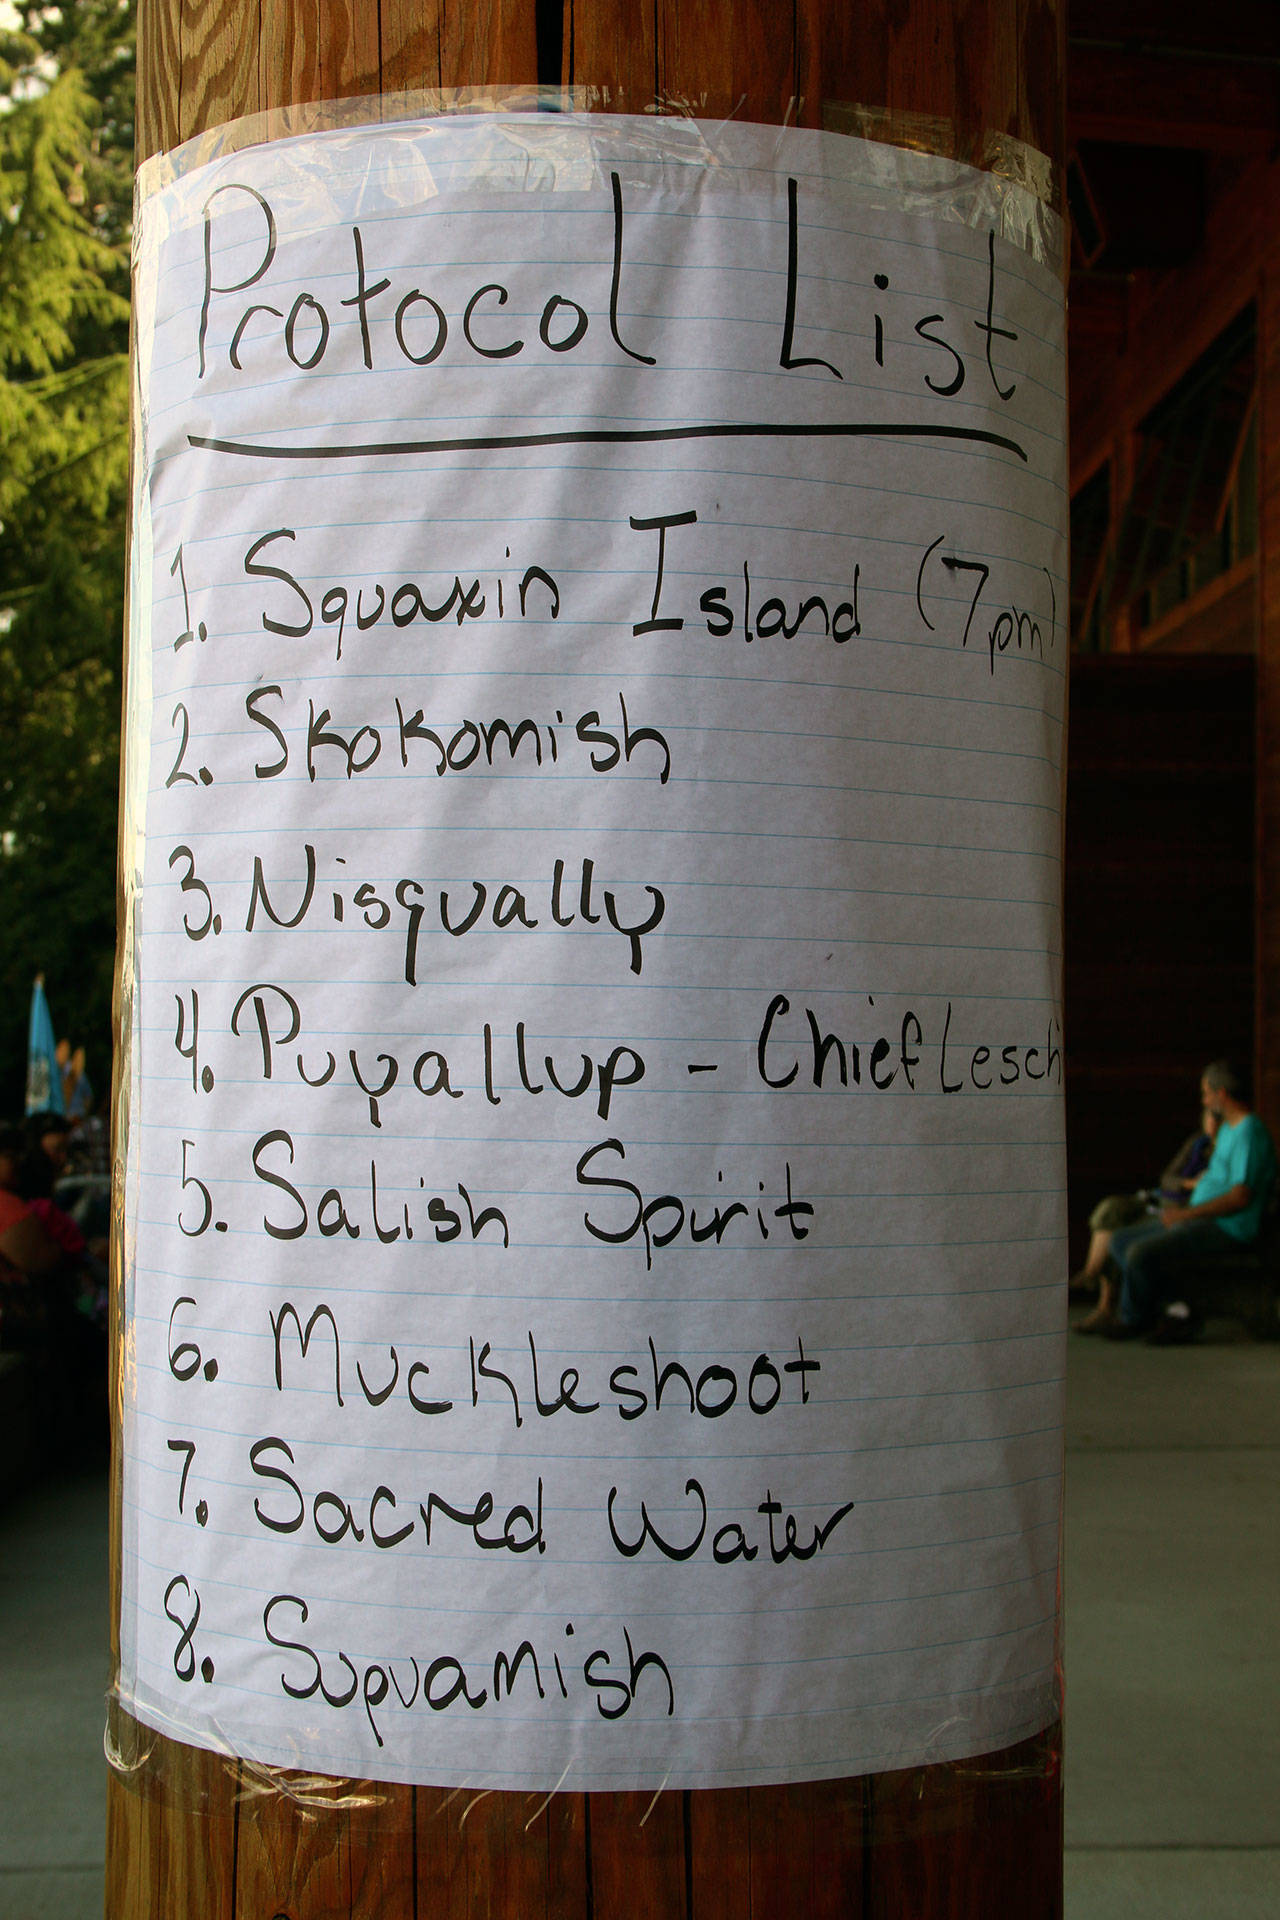 Protocol List
1. Squaxin Island (7pm)
2. Skokomish
3. Nisqually
4. Puyallup - Chief Lesch
5. Salish Spirit
6. Muckleshoot
7. Sacred Water
8. Suquamish